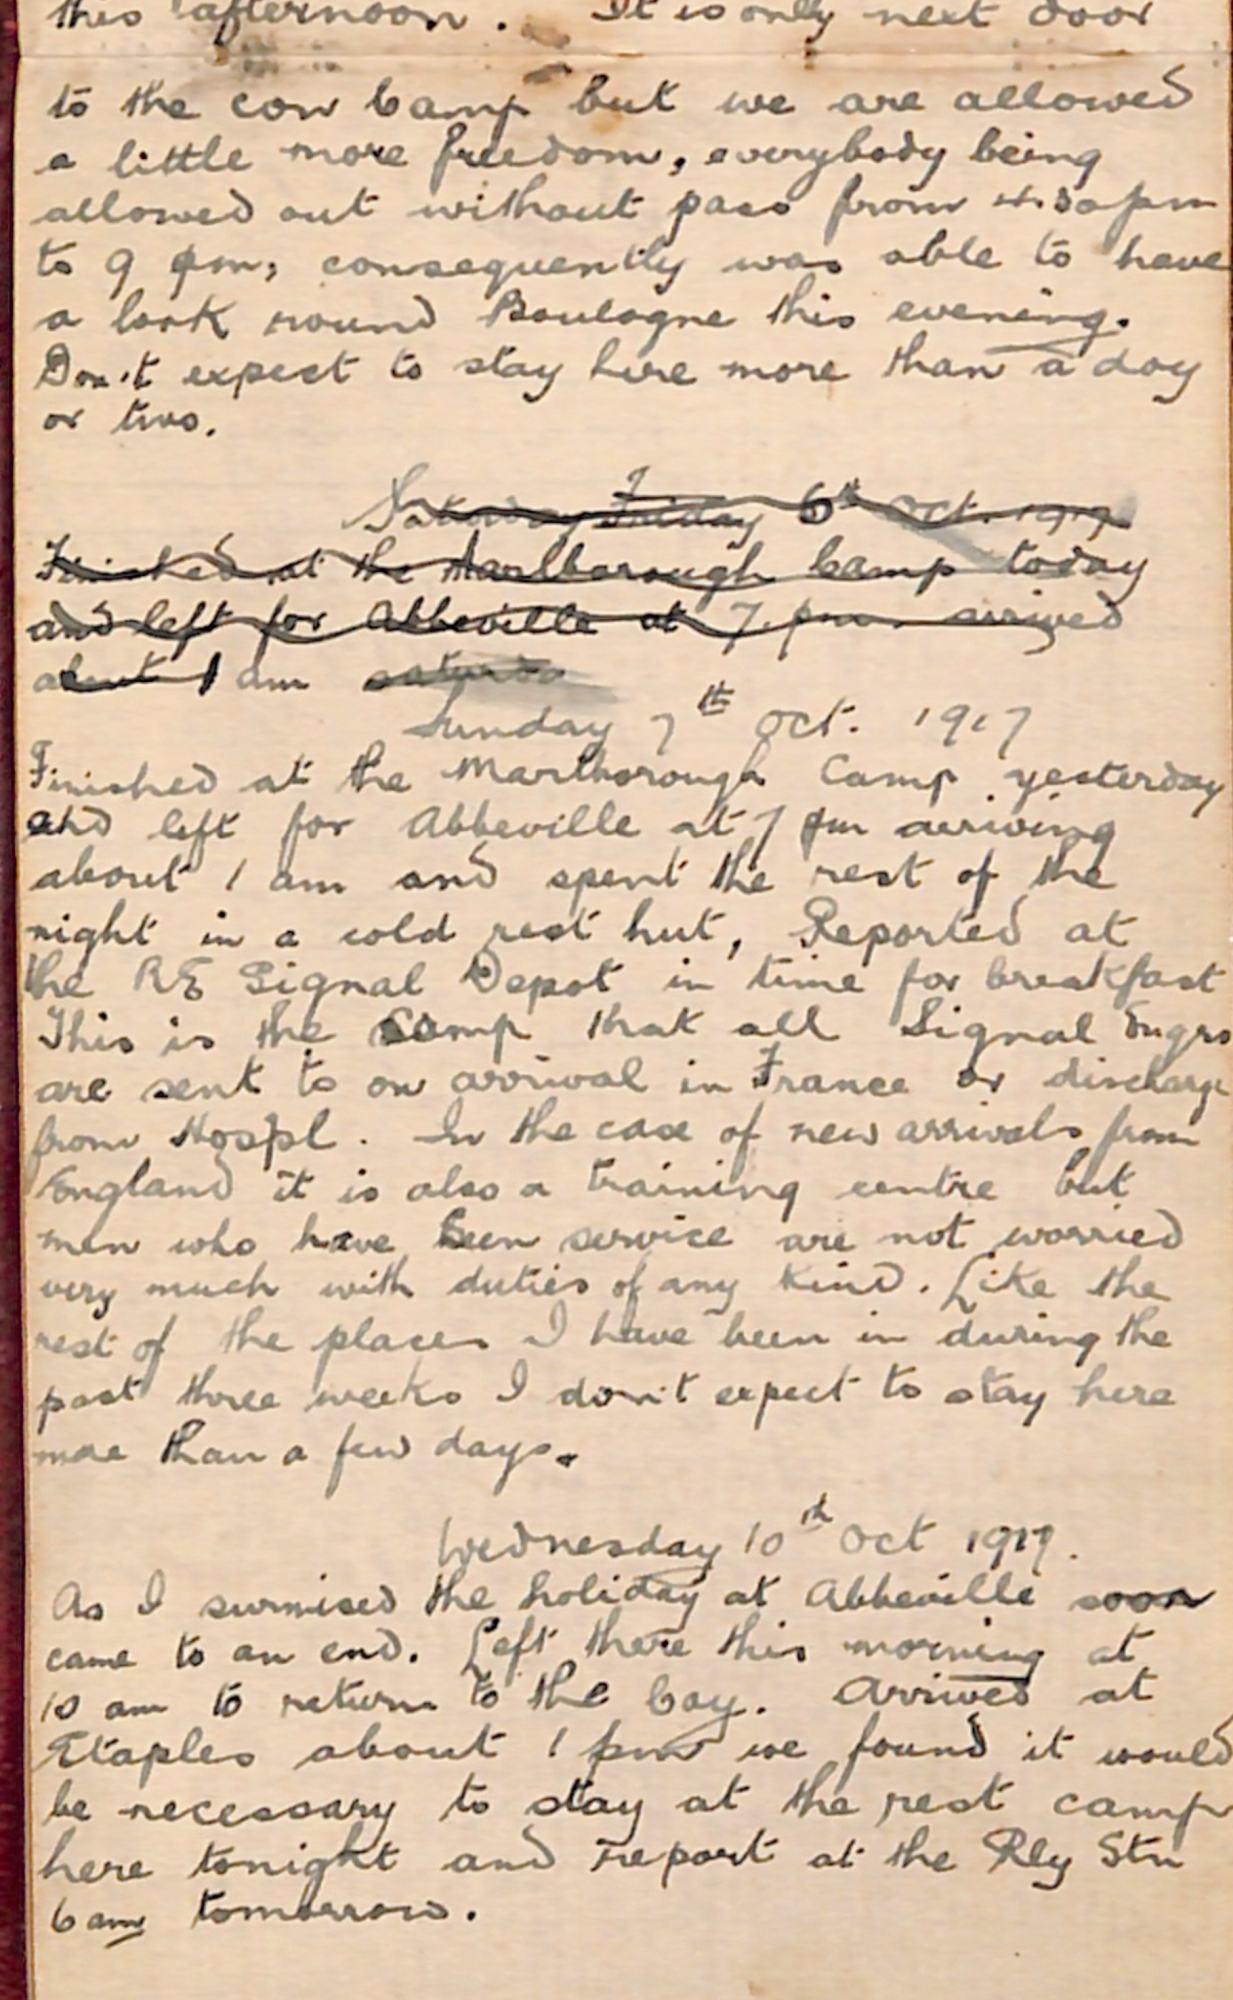 this afternoon. It is only next door
to the con Camp but we are allowed
a little more freedom, everybody being
allowed out without pass from 4.30 pm
to 9 pm, consequently was able to have
a look round Boulogne this evening.
Don't expect to stay here more than a day
or two.
Saturday Friday 6th Oct. 1917
Finished at the Marlborough Camp today
and left for Abbeville at 7. pm. arrived
about 1 am saturda
Sunday 7th Oct. 1917
Finished at the Marlborough Camp yesterday
and left for Abbeville at 7 pm arriving
about 1 am and spent the rest of the
night in a cold rest hut, Reported at
the RE Signal Depot in time for breakfast
This is the camp that all Signal Engrs
are sent to on arrival in France or discharge
from Hospl. In the case of new arrivals from
England it is also a training centre but
men who have seen service are not worried
very much with duties of any kind. Like the
rest of the places I have been in during the
past three weeks I don't expect to stay here
more than a few days.
Wednesday 10th Oct 1917.
As I surmised the holiday at Abbeville soon
came to an end. Left there this morning at
10 am to return to the Coy. Arrived at
Etaples about 1 pm we found it would
be necessary to stay at the rest camp
here tonight and report at the Rly Stn
6 am tomorrow.